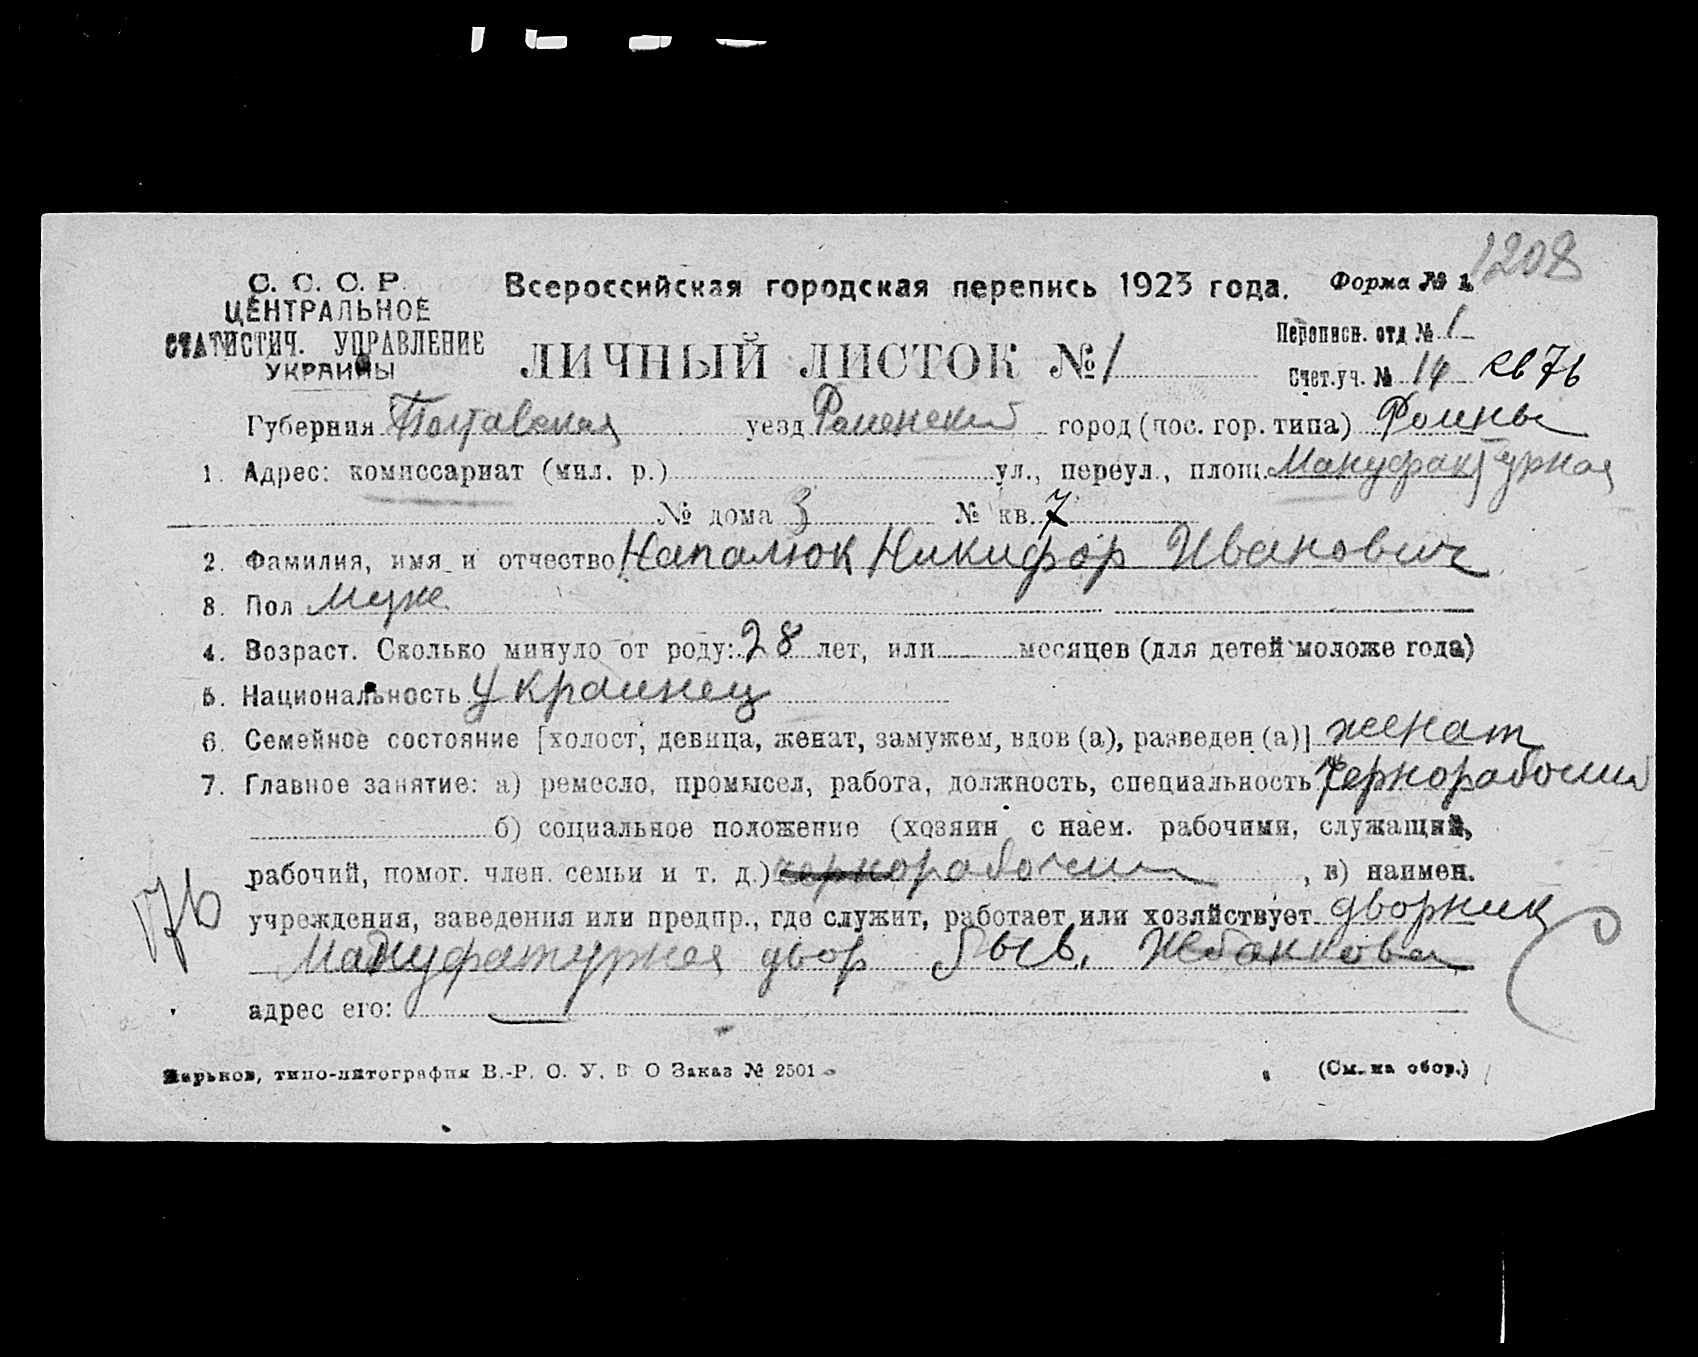 1208
С. С. С. Р.
ЦЕНТРАЛЬНОЕ
СТАТИСТИЧ. УПРАВЛЕНИЕ
УКРАИНЫ
Всероссийская городская перепись 1923 года. Форма № 1
ЛИЧНЫЙ ЛИСТОК № 1
Переписн. отд № 1
Счет.уч. № 14 кв 76
Губерния Полтавская уезд Роменский город (пос. гор. типа) Ромны
1. Адрес: комиссариат (мил. р.) ул., переул., площ. Мануфактурная
№ дома 3 № кв. 7
2. Фамилия, имя и отчество Напалюк Никифор Иванович
3. Пол Муж
4. Возраст. Сколько минуло от роду: 28 лет, или месяцев (для детей моложе года)
5. Национальность украинец
6. Семейное состояние [холост, девица, женат, замужем, вдов (а), разведен (а)] женат
7. Главное занятие: а) ремесло, промысел, работа, должность, специальность Чернорабочий
б) социальное положение (хозяин с наем. рабочими, служащий,
рабочий, помог. член. семьи и т. д.) чернорабочий, в) наимен.
76
учреждения, заведения или предпр., где служит, работает или хозяйствует дворник
Мануфатурная двор быв.
адрес его:
Харьков, типо-литография В.-Р. О. У. В О Заказ № 2501
(См. на обор.)